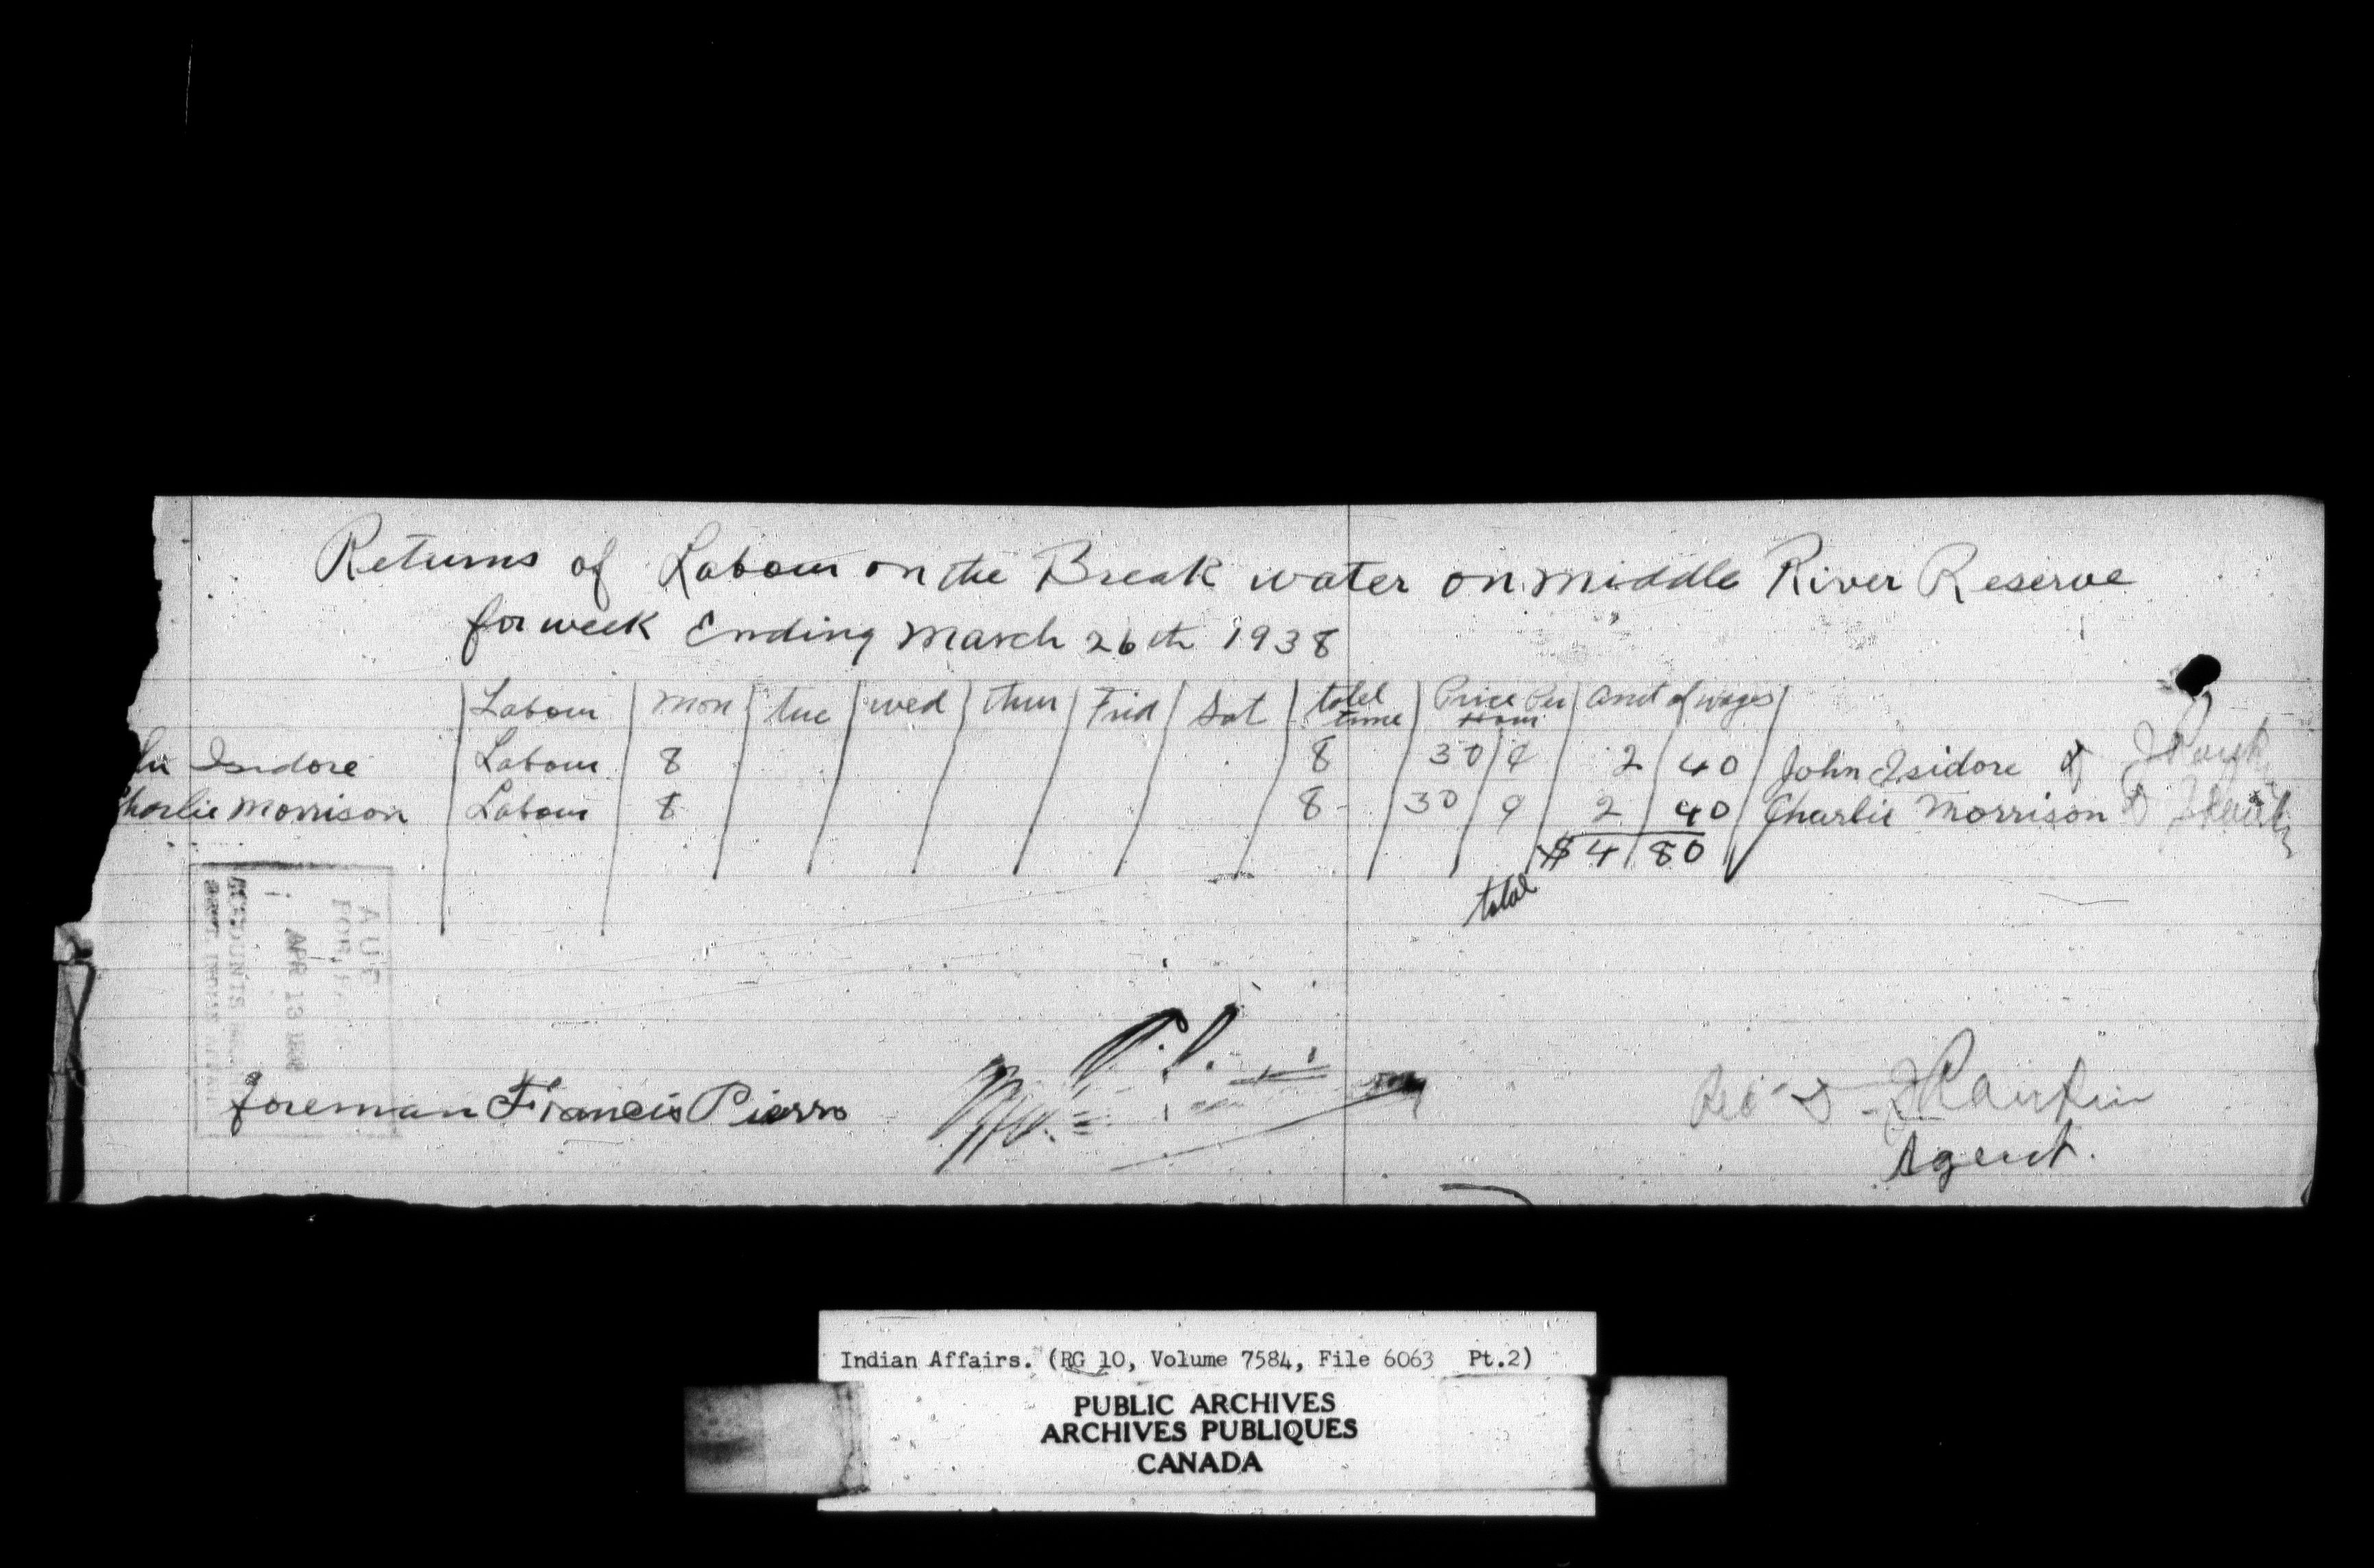 Returns of Labour on the Break water on middle River Reserve
for week Ending March 26th 1938
Labour mon tue wed thur Frid Sat total time Price Per Hour amt of wages
Isidore Labour 8 8 30 ¢ 2 40 John Isidore
Charlie Morrison Labour 8 8 30 ¢ 2 40 Charlie Morrison
$ 4 80
total
APR 13
ACCOUNTS
foreman Francis Pierro
Agent.
Indian Affairs. (RG 10, Volume 7584, File 6063 Pt.2)
PUBLIC ARCHIVES
ARCHIVES PUBLIQUES
CANADA